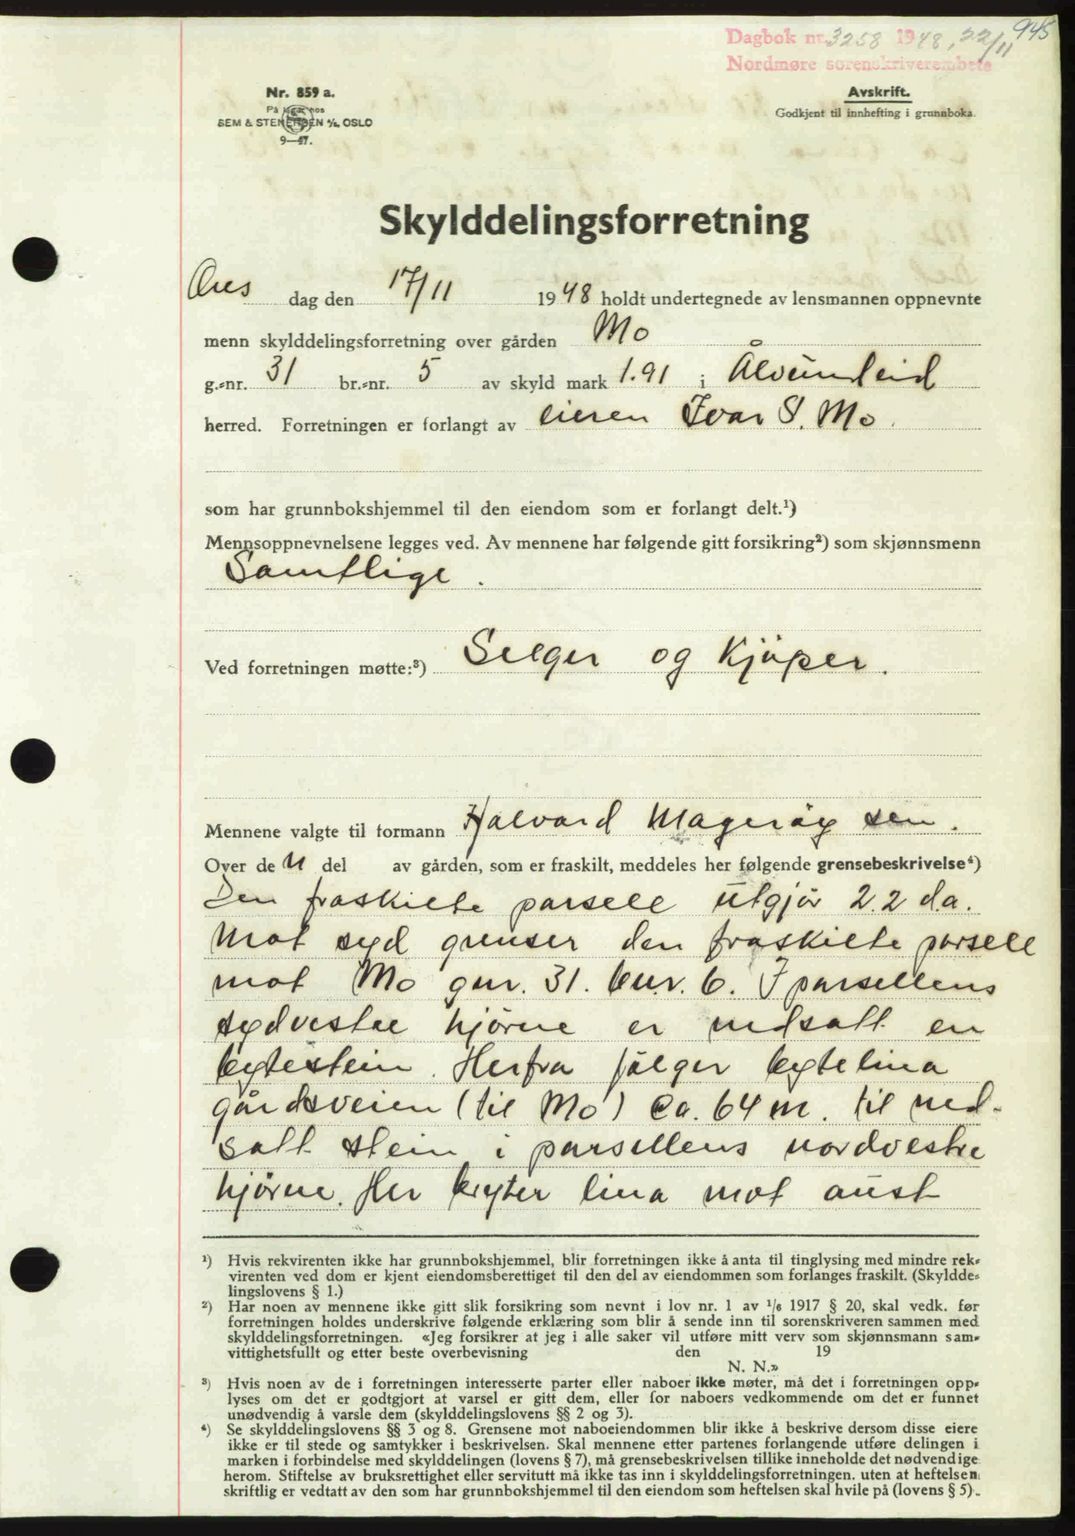 945
Dagbok nr. 3258 1948, 22/11
Nordmøre sorenskriverembete
Nr. 859 a.
På lager hos
SEM & STENERSEN A/S, OSLO
9—47.
Avskrift.
Godkjent til innhefting i grunnboka.
Skylddelingsforretning
Ons dag den 17/11 1948 holdt undertegnede av lensmannen oppnevnte
menn skylddelingsforretning over gården Mo
g.-nr. 31 br.-nr. 5 av skyld mark 1.91 i Ålvundeid
herred. Forretningen er forlangt av eieren Ivar S. Mo.
som har grunnbokshjemmel til den eiendom som er forlangt delt.¹)
Mennsoppnevnelsene legges ved. Av mennene har følgende gitt forsikring²) som skjønnsmenn
Samtlige.
Ved forretningen møtte:³) Selger og Kjøper.
Mennene valgte til formann Halvard Magerøy sen.
Over de n del av gården, som er fraskilt, meddeles her følgende grensebeskrivelse⁴)
Den fraskilte parsell utgjør 2.2 da.
Mot syd grenser den fraskilte parsell
mot Mo gnr. 31. bnr. 6. I parsellens
sydvestre hjørne er nedsatt en
bytestein. Herfra følger bytelina
gårdsveien (til Mo) ca. 64 m. til ned-
satt stein i parsellens nordvestre
hjørne. Her bryter lina mot aust
¹) Hvis rekvirenten ikke har grunnbokshjemmel, blir forretningen ikke å anta til tinglysing med mindre rek-
virenten ved dom er kjent eiendomsberettiget til den del av eiendommen som forlanges fraskilt. (Skyldde-
lingslovens § 1.)
²) Har noen av mennene ikke gitt slik forsikring som nevnt i lov nr. 1 av ¹/₆ 1917 § 20, skal vedk. før
forretningen holdes underskrive følgende erklæring som blir å sende inn til sorenskriveren sammen med
skylddelingsforretningen. «Jeg forsikrer at jeg i alle saker vil utføre mitt verv som skjønnsmann sam-
vittighetsfullt og etter beste overbevisning den 19
N. N.»
³) Hvis noen av de i forretningen interesserte parter eller naboer ikke møter, må det i forretningen opp-
lyses om det er godtgjort at varsel er gitt dem, eller for naboers vedkommende om det er funnet
unødvendig å varsle dem (skylddelingslovens §§ 2 og 3).
⁴) Se skylddelingslovens §§ 3 og 8. Grensene mot naboeiendommen blir ikke å beskrive dersom disse eiere
ikke er til stede og samtykker i beskrivelsen. Skal mennene etter partenes forlangende utføre delingen i
marken i forbindelse med skylddelingen (lovens § 7), må grensebeskrivelsen tillike inneholde det nødvendige
herom. Stiftelse av bruksrettighet eller servitutt må ikke tas inn i skylddelingsforretningen, uten at heftelsen
skriftlig er vedtatt av den som har grunnbokshjemmel til den eiendom som heftelsen skal hvile på (lovens § 5).